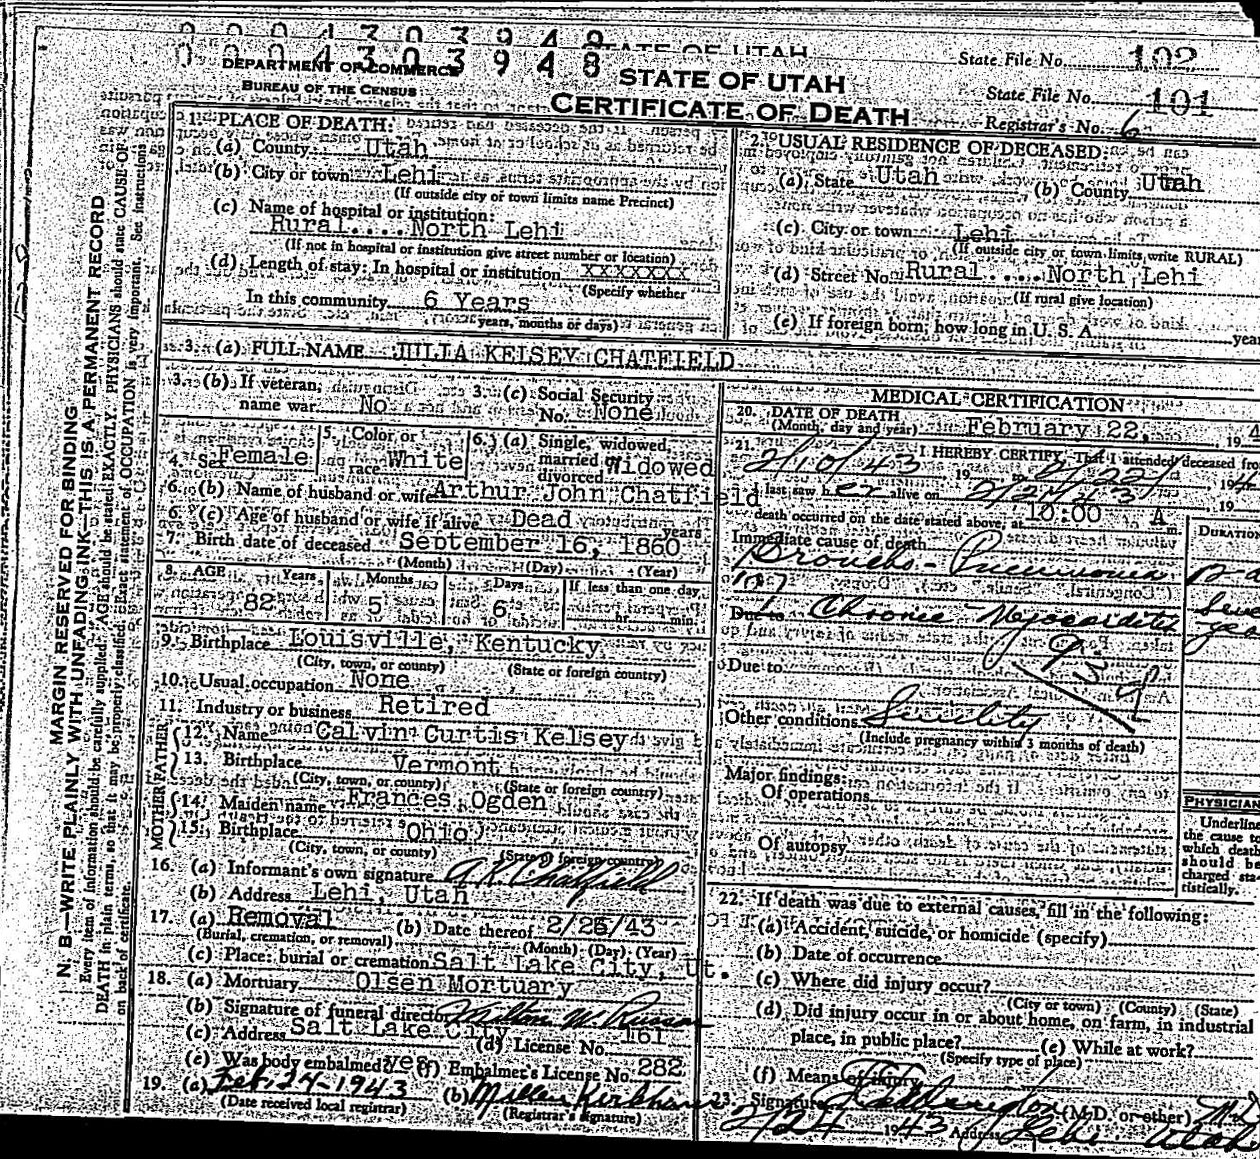 0004303948
STATE OF UTAH
State File No. 102
DEPARTMENT OF COMMERCE
BUREAU OF THE CENSUS
STATE OF UTAH
CERTIFICATE OF DEATH
State File No. 101
Registrar's No. 6
1. PLACE OF DEATH:
(a) County Utah
(b) City or town Lehi
(If outside city or town limits name Precinct)
(c) Name of hospital or institution:
Rural....North Lehi
(If not in hospital or institution give street number or location)
(d) Length of stay: In hospital or institution XXXXXXX
(Specify whether
In this community 6 Years
years, months or days)
2. USUAL RESIDENCE OF DECEASED:
(a) State Utah (b) County Utah
(c) City or town Lehi
(If outside city or town limits, write RURAL)
(d) Street No. Rural.....North Lehi
(If rural give location)
(e) If foreign born, how long in U. S. A.
3. (a) FULL NAME JULIA KELSEY CHATFIELD
3. (b) If veteran, name war No
3. (c) Social Security No. None
4. Sex Female
5. Color or race White
6. (a) Single, widowed, married or divorced Widowed
6. (b) Name of husband or wife Arthur John Chatfield
6. (c) Age of husband or wife if alive Dead years
7. Birth date of deceased September 16, 1860
(Month) (Day) (Year)
8. AGE Years Months Days If less than one day
82 5 6 hr. min.
9. Birthplace Louisville, Kentucky
(City, town, or county) (State or foreign country)
10. Usual occupation None
11. Industry or business Retired
FATHER
12. Name Calvin Curtis Kelsey
13. Birthplace Vermont
(City, town, or county) (State or foreign country)
MOTHER
14. Maiden name Frances Ogden
15. Birthplace Ohio
(City, town, or county) (State or foreign country)
16. (a) Informant's own signature A.K. Chatfield
(b) Address Lehi, Utah
17. (a) Removal (b) Date thereof 2/25/43
(Burial, cremation, or removal) (Month) (Day) (Year)
(c) Place: burial or cremation Salt Lake City, Ut.
18. (a) Mortuary Olsen Mortuary
(b) Signature of funeral director Milton W.
(c) Address Salt Lake City (d) License No. 161
(e) Was body embalmed? yes (f) Embalmer's License No. 282
19. (a) Feb. 24-1943 (b) Millen Kirkham
(Date received local registrar) (Registrar's signature)
MEDICAL CERTIFICATION
20. DATE OF DEATH
(Month, day and year) February 22, 19
21. I HEREBY CERTIFY, That I attended deceased
2/10/43 19 to 2/22/ 194
I last saw her alive on 2/21/43 19
death occurred on the date stated above, at 10:00 A m
Immediate cause of death
Broncho-Pneumonia
107
Due to Chronic Myocarditis
93d
Due to
Other conditions Senility
(Include pregnancy within 3 months of death)
Major findings:
Of operations
Of autopsy
DURATION
PHYSICIAN
Underline
the cause
which death
should be
charged sta-
tistically.
22. If death was due to external causes, fill in the following:
(a) Accident, suicide, or homicide (specify)
(b) Date of occurrence
(c) Where did injury occur?
(City or town) (County) (State)
(d) Did injury occur in or about home, on farm, in industrial
place, in public place? (e) While at work?
(Specify type of place)
(f) Means of injury
23. Signature (M.D. or other) M.D.
2/24 1943 Address Lehi Utah
MARGIN RESERVED FOR BINDING
N. B.—WRITE PLAINLY WITH UNFADING INK—THIS IS A PERMANENT RECORD
Every item of information should be carefully supplied. AGE should be stated EXACTLY. PHYSICIANS should state CAUSE OF
DEATH in plain terms, so that it may be properly classified. Exact statement of OCCUPATION is very important. See instructions
on back of certificate.